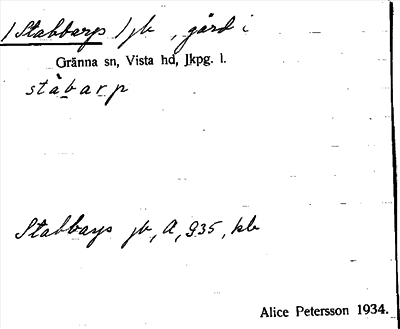 /Stabbarp / jb, gård i
Gränna sn, Vista hd, Jkpg. l.
stàbarp
Stabbarp jb, A, 935, kb
Alice Petersson 1934.